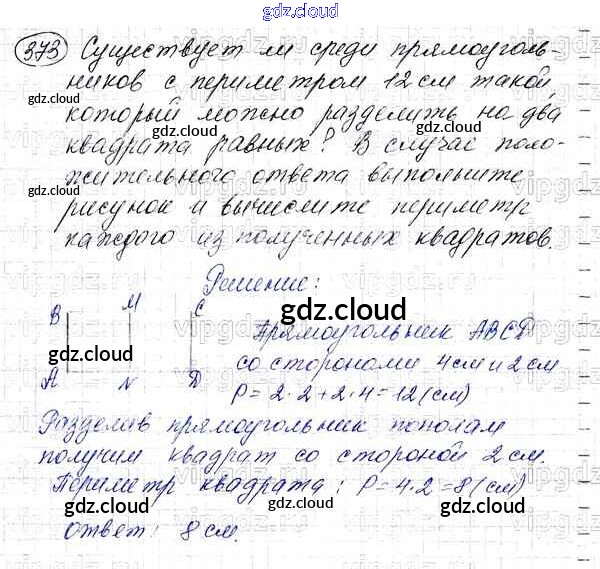 gdz.cloud
373 Существует ли среди прямоуголь-
ников с периметром 12 см такой,
который можно разделить на два
квадрата равных? В случае поло-
жительного ответа выполните
рисунок и вычислите периметр
каждого из полученных квадратов.
Решение:
B M C
A N D
Прямоугольник ABCD
со сторонами 4 см и 2 см
P = 2·2+2·4=12 (см)
Разделив прямоугольник пополам
получим квадрат со стороной 2 см.
Периметр квадрата: P=4·2=8 (см)
Ответ: 8 см.